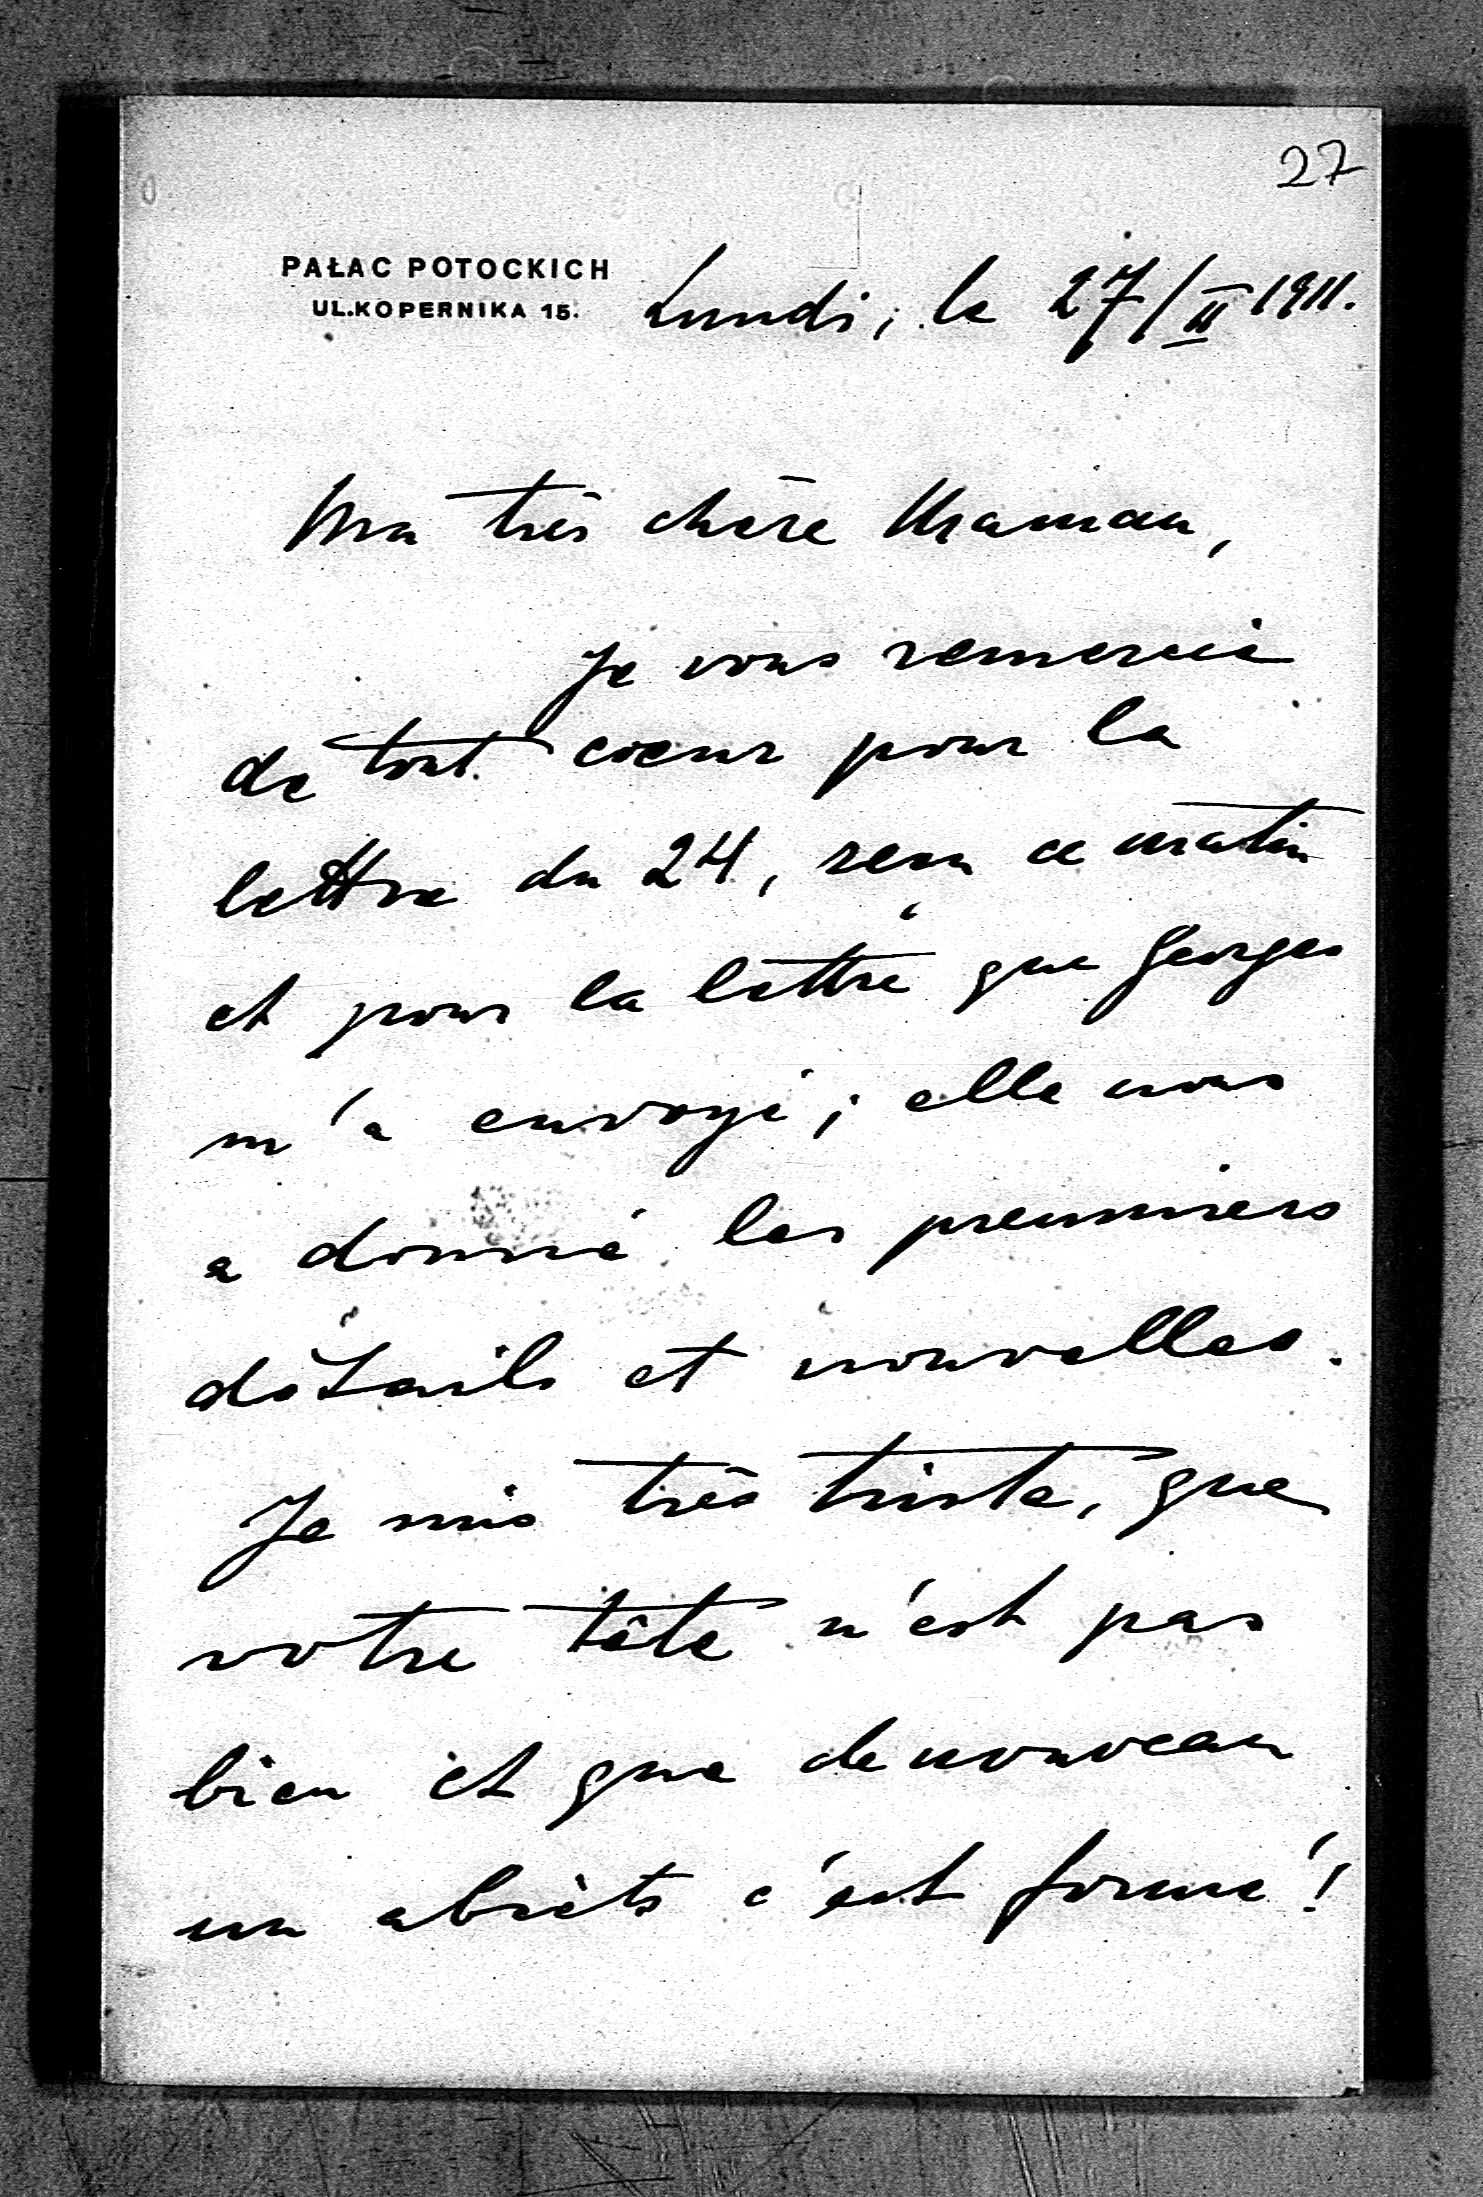 27
PAŁAC POTOCKICH
UL.KOPERNIKA 15.
Lundi, le 27/II 1911.
Ma très chère Maman,
Je vous remercie
de tout coeur pour la
lettre du 24, reçu ce matin
et pour la lettre que Georges
m'a envoyé; elle nous
a donné les premniers
détails et nouvelles.
Je suis très triste, que
votre tête n'est pas
bien et que de nouveau
un abcèts c'est formé!